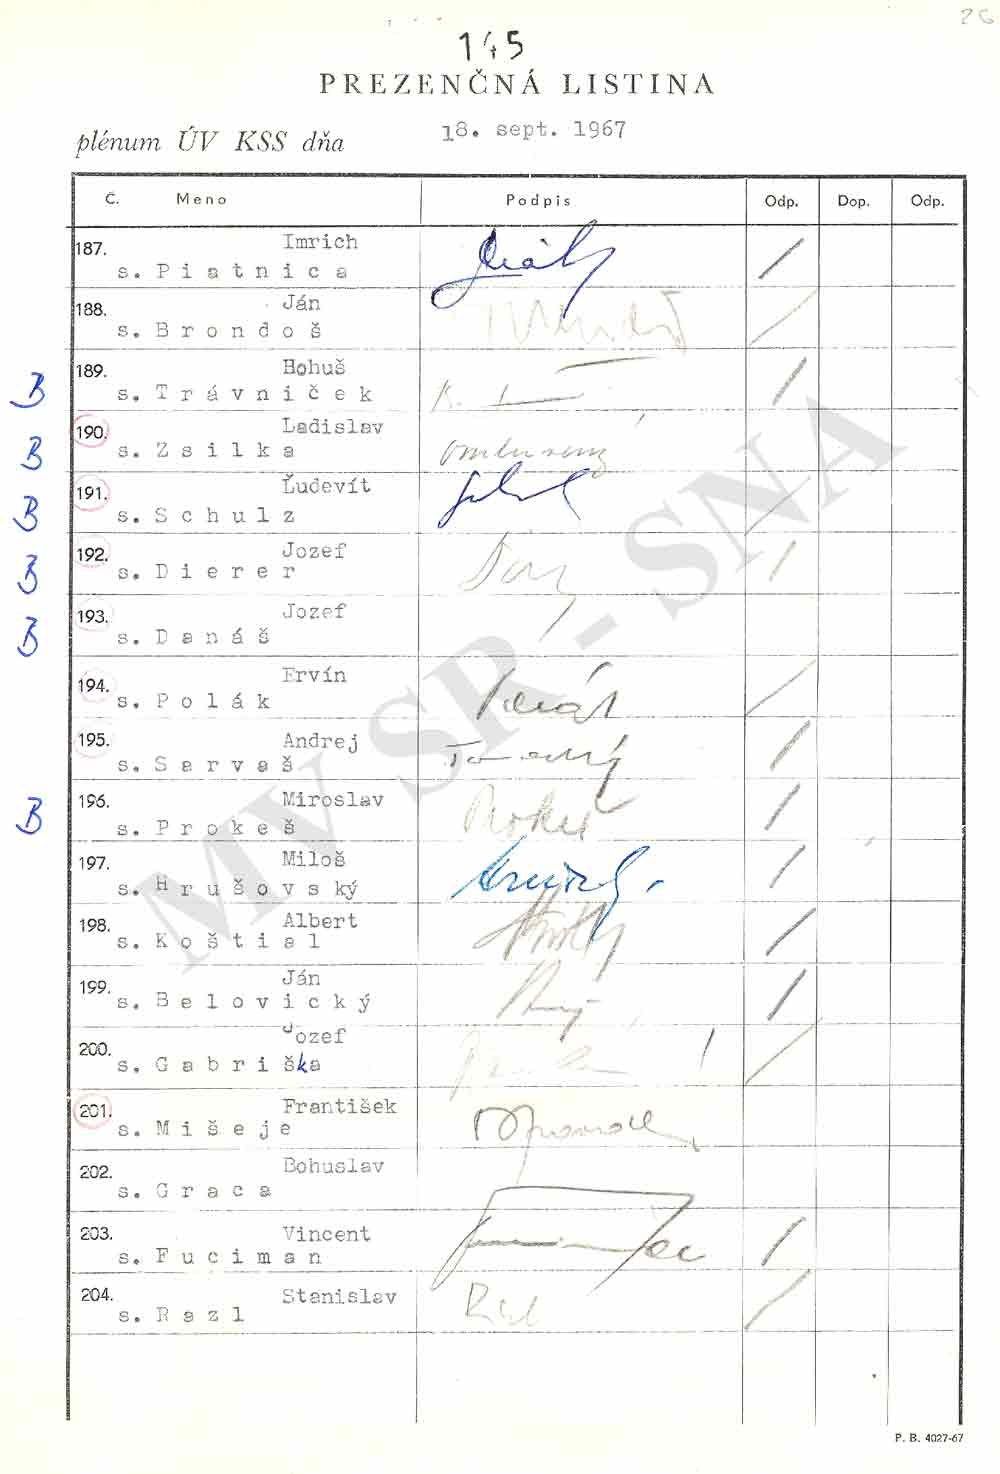 26
145
PREZENČNÁ LISTINA
plénum ÚV KSS dňa 18. sept. 1967
Č. Meno Podpis Odp. Dop. Odp.
187. Imrich
s. Piatnica
188. Ján
s. Brondoš
189. Bohuš
B s. Trávniček
190. Ladislav
B s. Zsilka
191. Ľudevít
B s. Schulz
192. Jozef
B s. Dierer
193. Jozef
B s. Danáš
194. Ervín
s. Polák
195. Andrej
s. Servaš
196. Miroslav
B s. Prokeš Prokeš
197. Miloš
s. Hrušovský
198. Albert
s. Koštial
199. Ján
s. Belovický
200. Jozef
s. Gabriška
201. František
s. Mišeje
202. Bohuslav
s. Graca
203. Vincent
s. Fuciman
204. Stanislav
s. Razl
MV SR - SNA
P. B. 4027-67